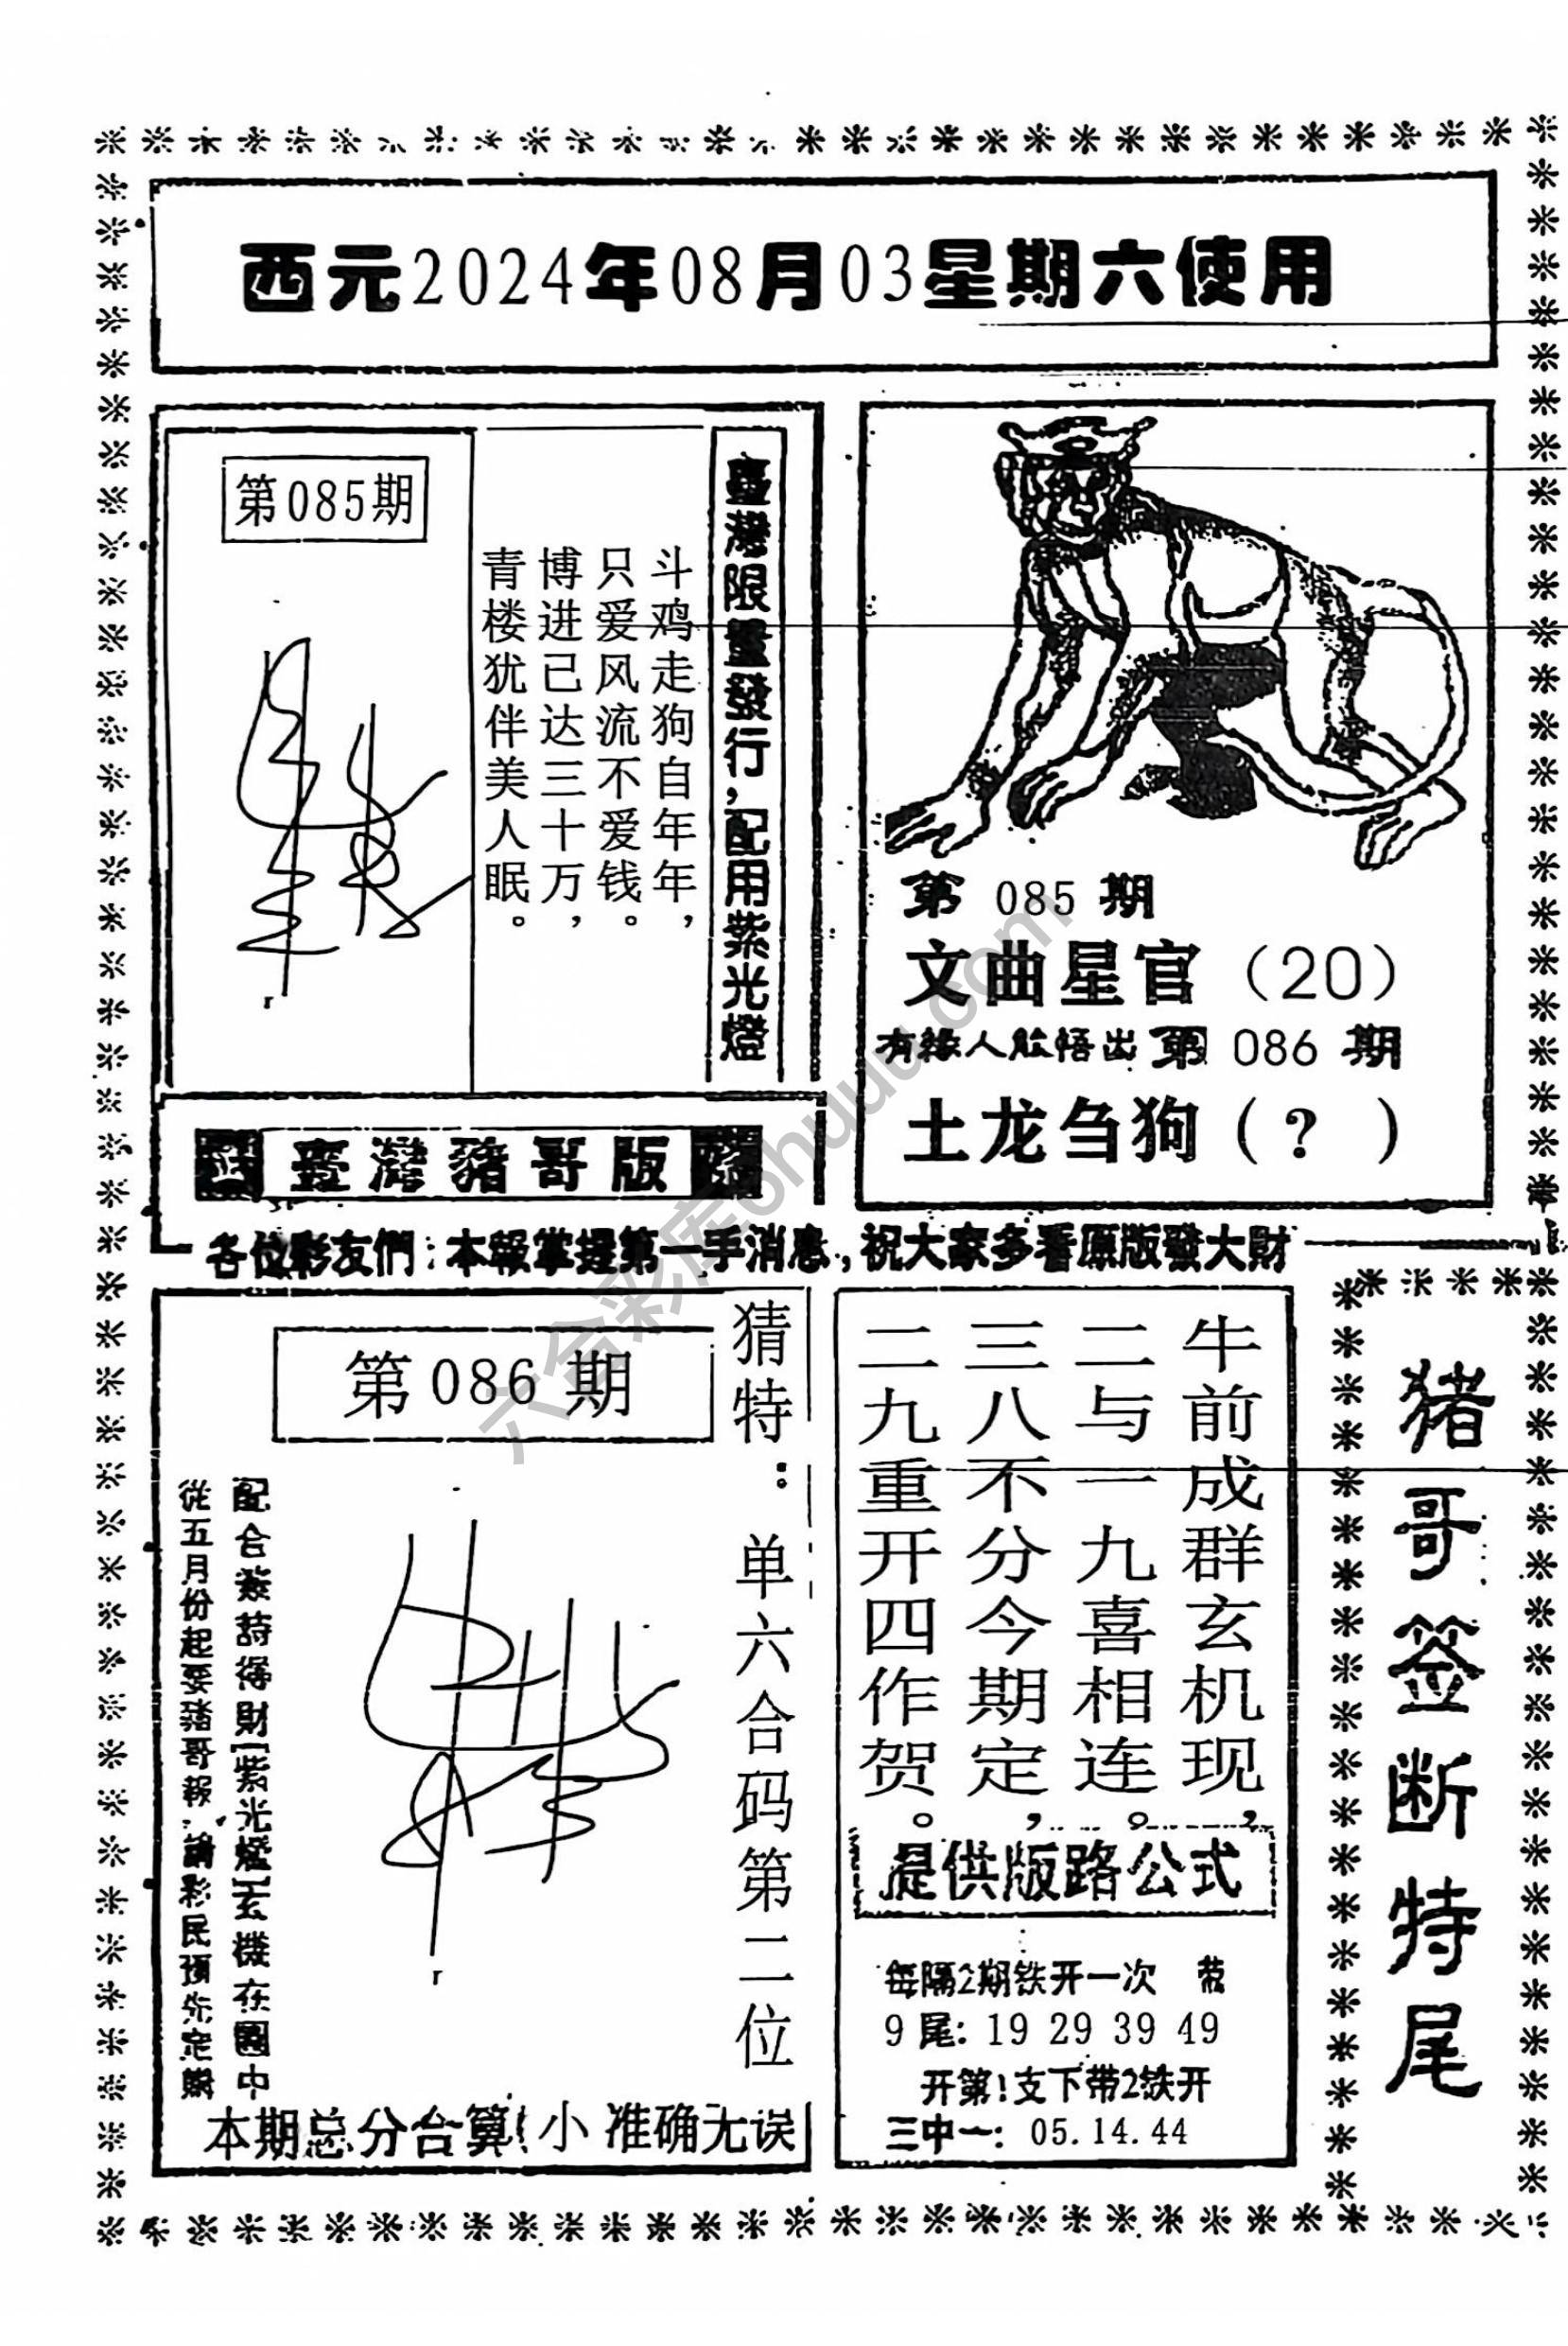 西元2024年08月03星期六使用
第085期
斗鸡走狗自年年，
只爱风流不爱钱。
博进已达三十万，
青楼犹伴美人眠。
臺灣限量發行，配用紫光燈
第 085 期
文曲星官（20）
有緣人 悟出 第 086 期
土龙刍狗（？）
臺灣豬哥版
各位彩友們：本報掌握第一手消息，祝大家多看原版發大財
第086期
猜特：单六合码第二位
配合 詩得財【紫光燈】玄機在圖中
從五月份起要豬哥報，請彩民預先定購
本期总分合算！小 准确无误
牛前成群玄机现，
二与一九喜相连。
三八不分今期定，
二九重开四作贺。
提供版路公式
每隔2期铁开一次
9尾：19 29 39 49
开第1支下带2铁开
三中一：05.14.44
猪哥签断特尾
六合彩库ohuuu.com